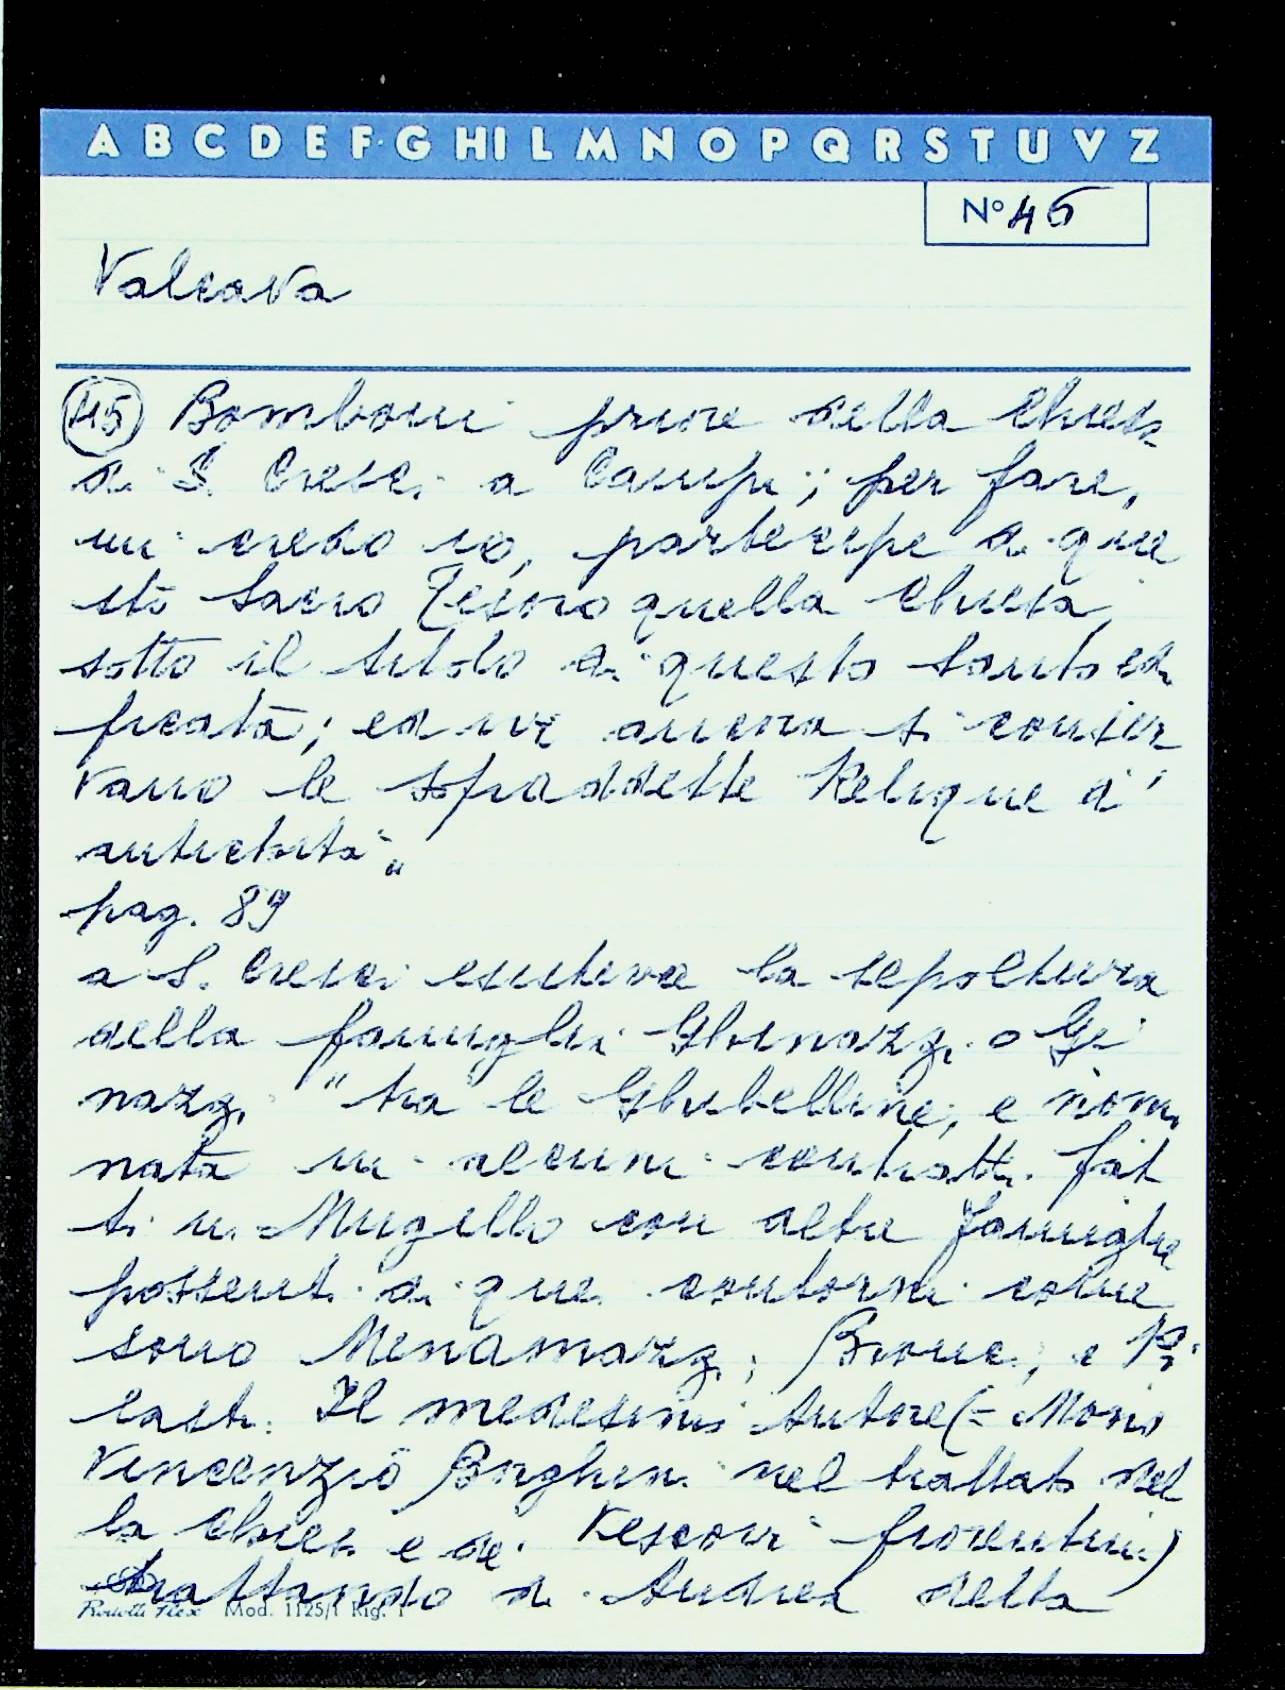 A B C D E F G HI L M N O P Q R S T U V Z
N° 45
Valcava
45 Bomboni priore della Chiesa
di S. Cresci a Campi; per fare,
mi credo io, partecipe di que
sto Sacro Tesoro quella Chiesa,
sotto il titolo di questo Santo edi
ficata; ed ivi ancora si conser
vano le spraddette Reliquie d'
antichità„
pag. 89
a S. Cresci esisteva la sepoltura
della famiglia Ghinazzi o Gi
nazzi "tra le Ghibelline, e nomi
nata in alcuni contratti fat
ti in Mugello con altre famiglie
possenti di quei contorni come
sono Menamazzi, e Pi
lasti. Il medesimo Autore (= Mons
Vincenzio Borghini nel trattato del
la Chiesa e de' Vescovi fiorentini)
trattando di Andrea della
Mod. 1125/1 Rig. 1